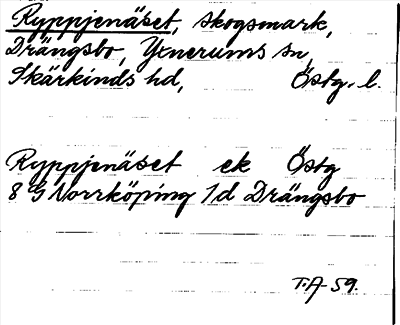 Ryppjenäset, skogsmark,
Drängsbo, Yxnerums sn,
Skärkinds hd, Östg. l.
Ryppjenäset ek Östg
8 G Norrköping 1d Drängsbo
T.A- 59.